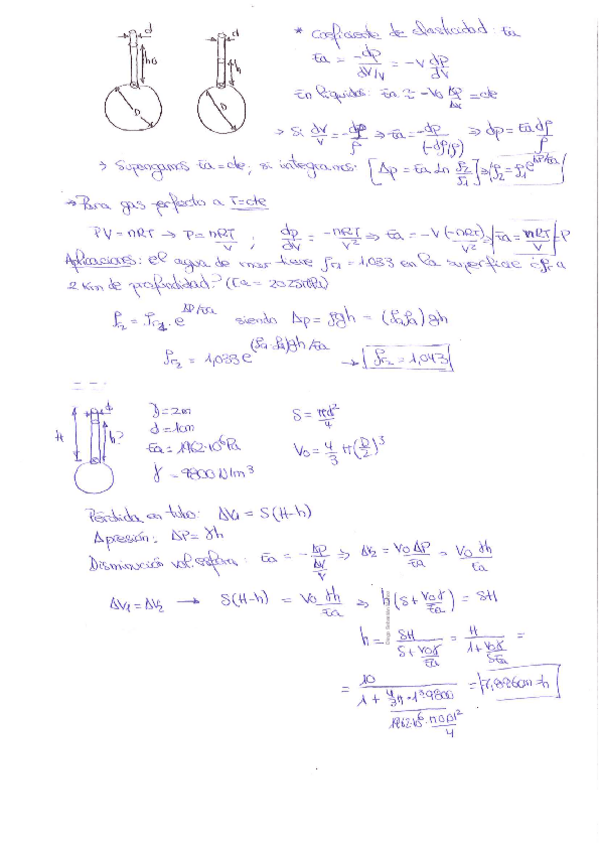 d d
* Coeficiente de elasticidad: Ea
ho h
D D
Ea = -dp / dV/V = -V dp/dV
En líquidos: Ea ≈ -Vo Δp/Δv = cte
→ Si dV/V = -dρ/ρ ⇒ Ea = -dp/(-dρ/ρ) ⇒ dp = Ea dρ/ρ
→ Supongamos Ea = cte, si integramos: [Δp = Ea Ln ρ2/ρ1] ⇒ ρ2 = ρ1 e^Δp/Ea
→ Para gas perfecto a T = cte
PV = nRT → P = nRT/V ; dp/dV = -nRT/V² ⇒ Ea = -V(-nRT/V²) ⇒ Ea = nRT/V = P
Aplicaciones: el agua de mar tiene ρr1 = 1,033 en la superficie ¿ρr a
2 Km de profundidad?
ρr2 = ρr1 · e^Δp/Ea siendo Δp = ρgh
ρr2 = 1,033 e → ρr2 = 1,043
d
H h?
D = 2m
d = 1cm
Ea = 1962·10⁶ Pa
γ = 9800 N/m³
S = πd²/4
Vo = 4/3 π(D/2)³
Pérdida en tubo: ΔV1 = S(H-h)
Δpresión: ΔP = γh
Disminución vol. esfera: Ea = -Δp / ΔV/V ⇒ ΔV2 = VoΔP/Ea = Vo γh/Ea
ΔV1 = ΔV2 → S(H-h) = Vo γh/Ea ⇒ h(S + Voγ/Ea) = SH
h = SH / (S + Voγ/Ea) = H / (1 + Voγ/SEa) =
= 10 / (1 + 4/3π·1³·9800 / (1962·10⁶·π0,01²/4)) =